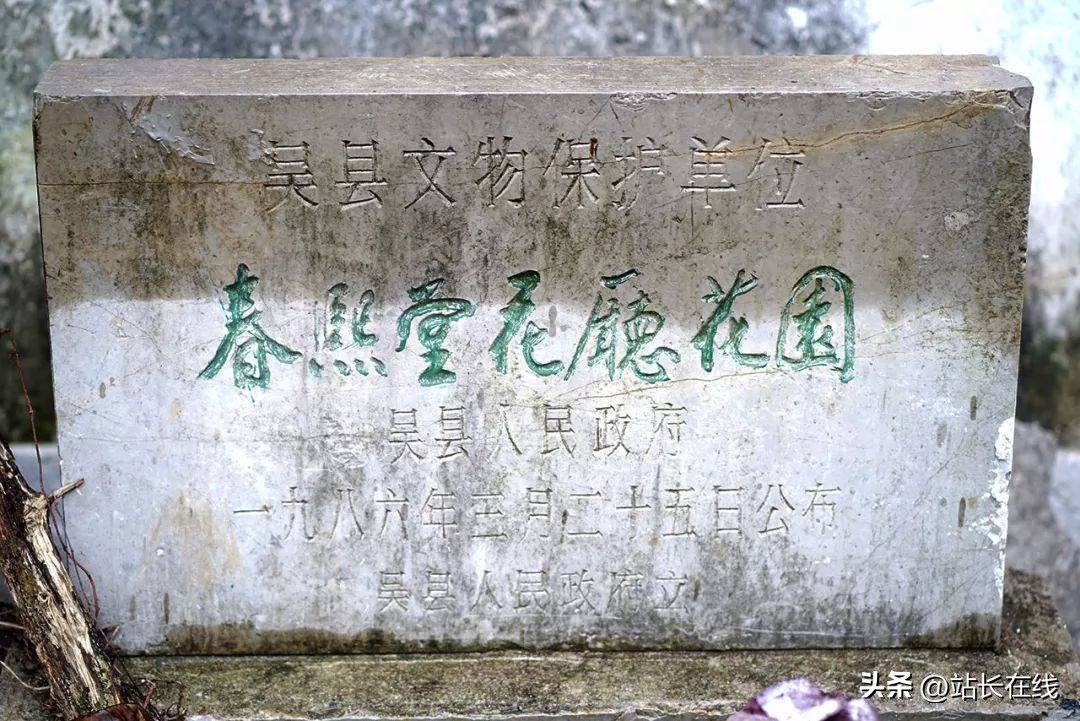 吴县文物保护单位
春熙堂花廳花園
吴县人民政府
一九八六年三月二十五日公布
吴县人民政府立
头条 @站长在线